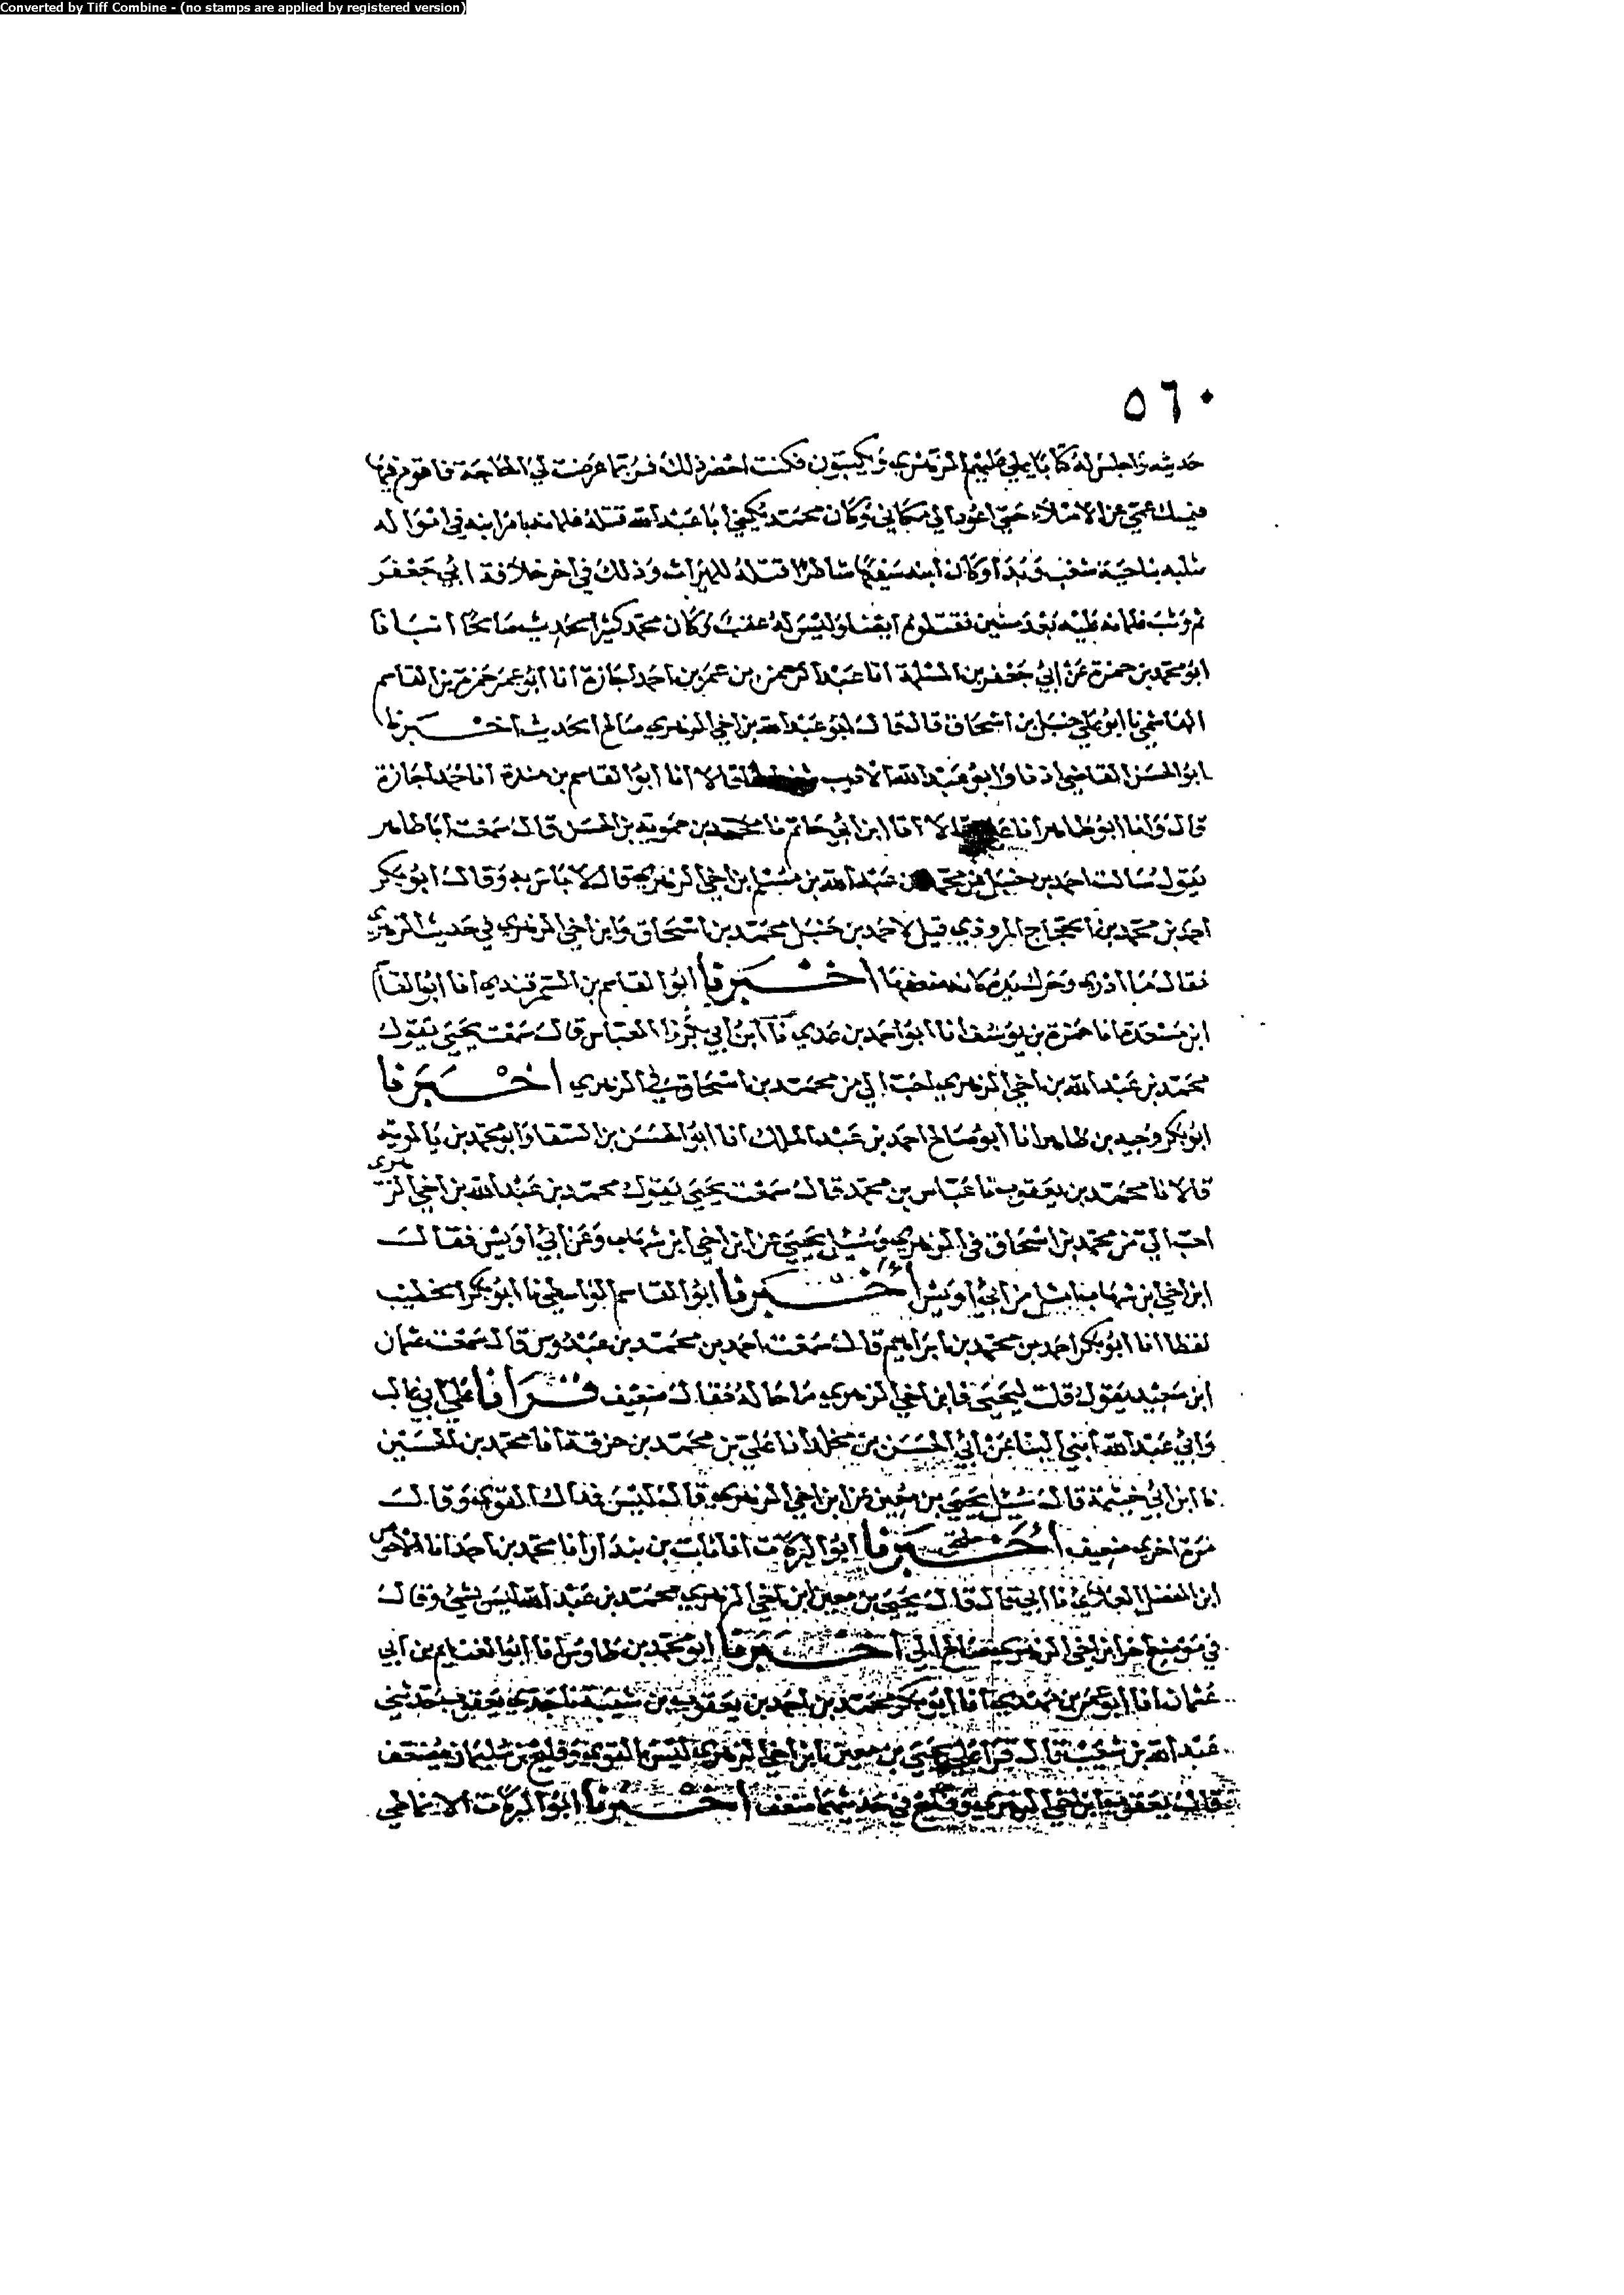 Converted by Tiff Combine - (no stamps are applied by registered version)
٥٦٠
حديثه واجلس له كتابا يملي عليهم الزهري ويكتبون فكنت احضر ذلك فربما عرضت لي الحاجة فاقوم فيها
فيمسك عمي عن الاملاء حتى اعود الي مكاني وكان محمد يكنى ابا عبد الله قتله غلمانه بامر ابنه في امواله
بثليه بناحية شغب وبدا وكان ابنه سفيها شاطرا قتله للميراث وذلك في اخر خلافة ابي جعفر
ثم وثب غلمانه عليه بعد سنين فقتلوه ايضا وليس له عقب وكان محمد كثير الحديث صالحا انبانا
ابو محمد بن حمزة عن ابي جعفر بن المسلمة انا عبد الرحمن بن عمر بن احمد اجازة انا ابو عمر حمزة بن القاسم
الهاشمي نا ابو علي حنبل بن اسحاق قال قال ابو عبد الله بن اخي الزهري صالح الحديث اخبرنا
ابو الحسن القاضي اذنا وابو عبد الله الاديب قالا انا ابو القاسم بن مندة انا حمد اجازة
قال وانا ابو طاهر انا علي قالا انا ابن ابي حاتم نا محمد بن حموية بن الحسن قال سمعت ابا طالب
يقول سالت احمد بن حنبل عن محمد بن عبد الله بن مسلم ابن اخي الزهري قال لا باس به وقال ابو بكر
احمد بن محمد بن الحجاج المروذي قيل لاحمد بن حنبل محمد بن اسحاق وابن اخي الزهري في حديث الزهري
فقال ما ادري وحرك يده كانه ضعفهما اخبرنا ابو القاسم بن السمرقندي انا ابو القاسم
ابن مسعدة انا حمزة بن يوسف انا ابو احمد بن عدي نا ابن ابي بكر نا العباس قال سمعت يحيى يقول
محمد بن عبد الله بن اخي الزهري احب الي من محمد بن اسحاق في الزهري اخبرنا
ابو بكر وجيه بن طاهر انا ابو صالح احمد بن عبد الملك انا ابو الحسن بن السقا وابو محمد بن بالوية
قالا نا محمد بن يعقوب نا عباس بن محمد قال سمعت يحيى يقول محمد بن عبد الله بن اخي الزهري
احب الي من محمد بن اسحاق في الزهري وسئل يحيى عن ابن اخي ابن شهاب وعن ابي اويس فقال
ابن اخي ابن شهاب امثل من ابي اويس اخبرنا ابو القاسم الواسطي نا ابو بكر الخطيب
لفظا انا ابو بكر احمد بن محمد بن ابراهيم قال سمعت احمد بن محمد بن عبدوس قال سمعت عثمان
ابن سعيد يقول قلت ليحيى فابن اخي الزهري ما حاله فقال ضعيف قرانا علي ابي غالب
وابي عبد الله ابني البنا عن ابي الحسن بن مخلد انا علي بن محمد بن خزفة انا محمد بن الحسين
نا ابن ابي خيثمة قال سئل يحيى بن معين عن ابن اخي الزهري قال ليس بذاك القوي وقال
مرة اخرى ضعيف اخبرنا ابو البركات انا ثابت بن بندار انا محمد بن احمد انا الاحوص
ابن المفضل الغلابي نا ابي قال قال يحيى بن معين ابن اخي الزهري محمد بن عبد الله ليس بشي وقال
في موضع اخر ابن اخي الزهري صالح اخبرنا ابو محمد بن طاوس انا ابو الغنايم بن ابي
عثمان انا ابو عمر بن مهدي انا ابو بكر محمد بن احمد بن يعقوب بن شيبة نا جدي يعقوب حدثني
عبد الله بن شعيب قال قرا علي يحيى بن معين ابن اخي الزهري ليس بالقوي وفليح بن سليمان يضعف
قال يعقوب ابن اخي الزهري وفليح في حديثهما ضعف اخبرنا ابو البركات الانماطي